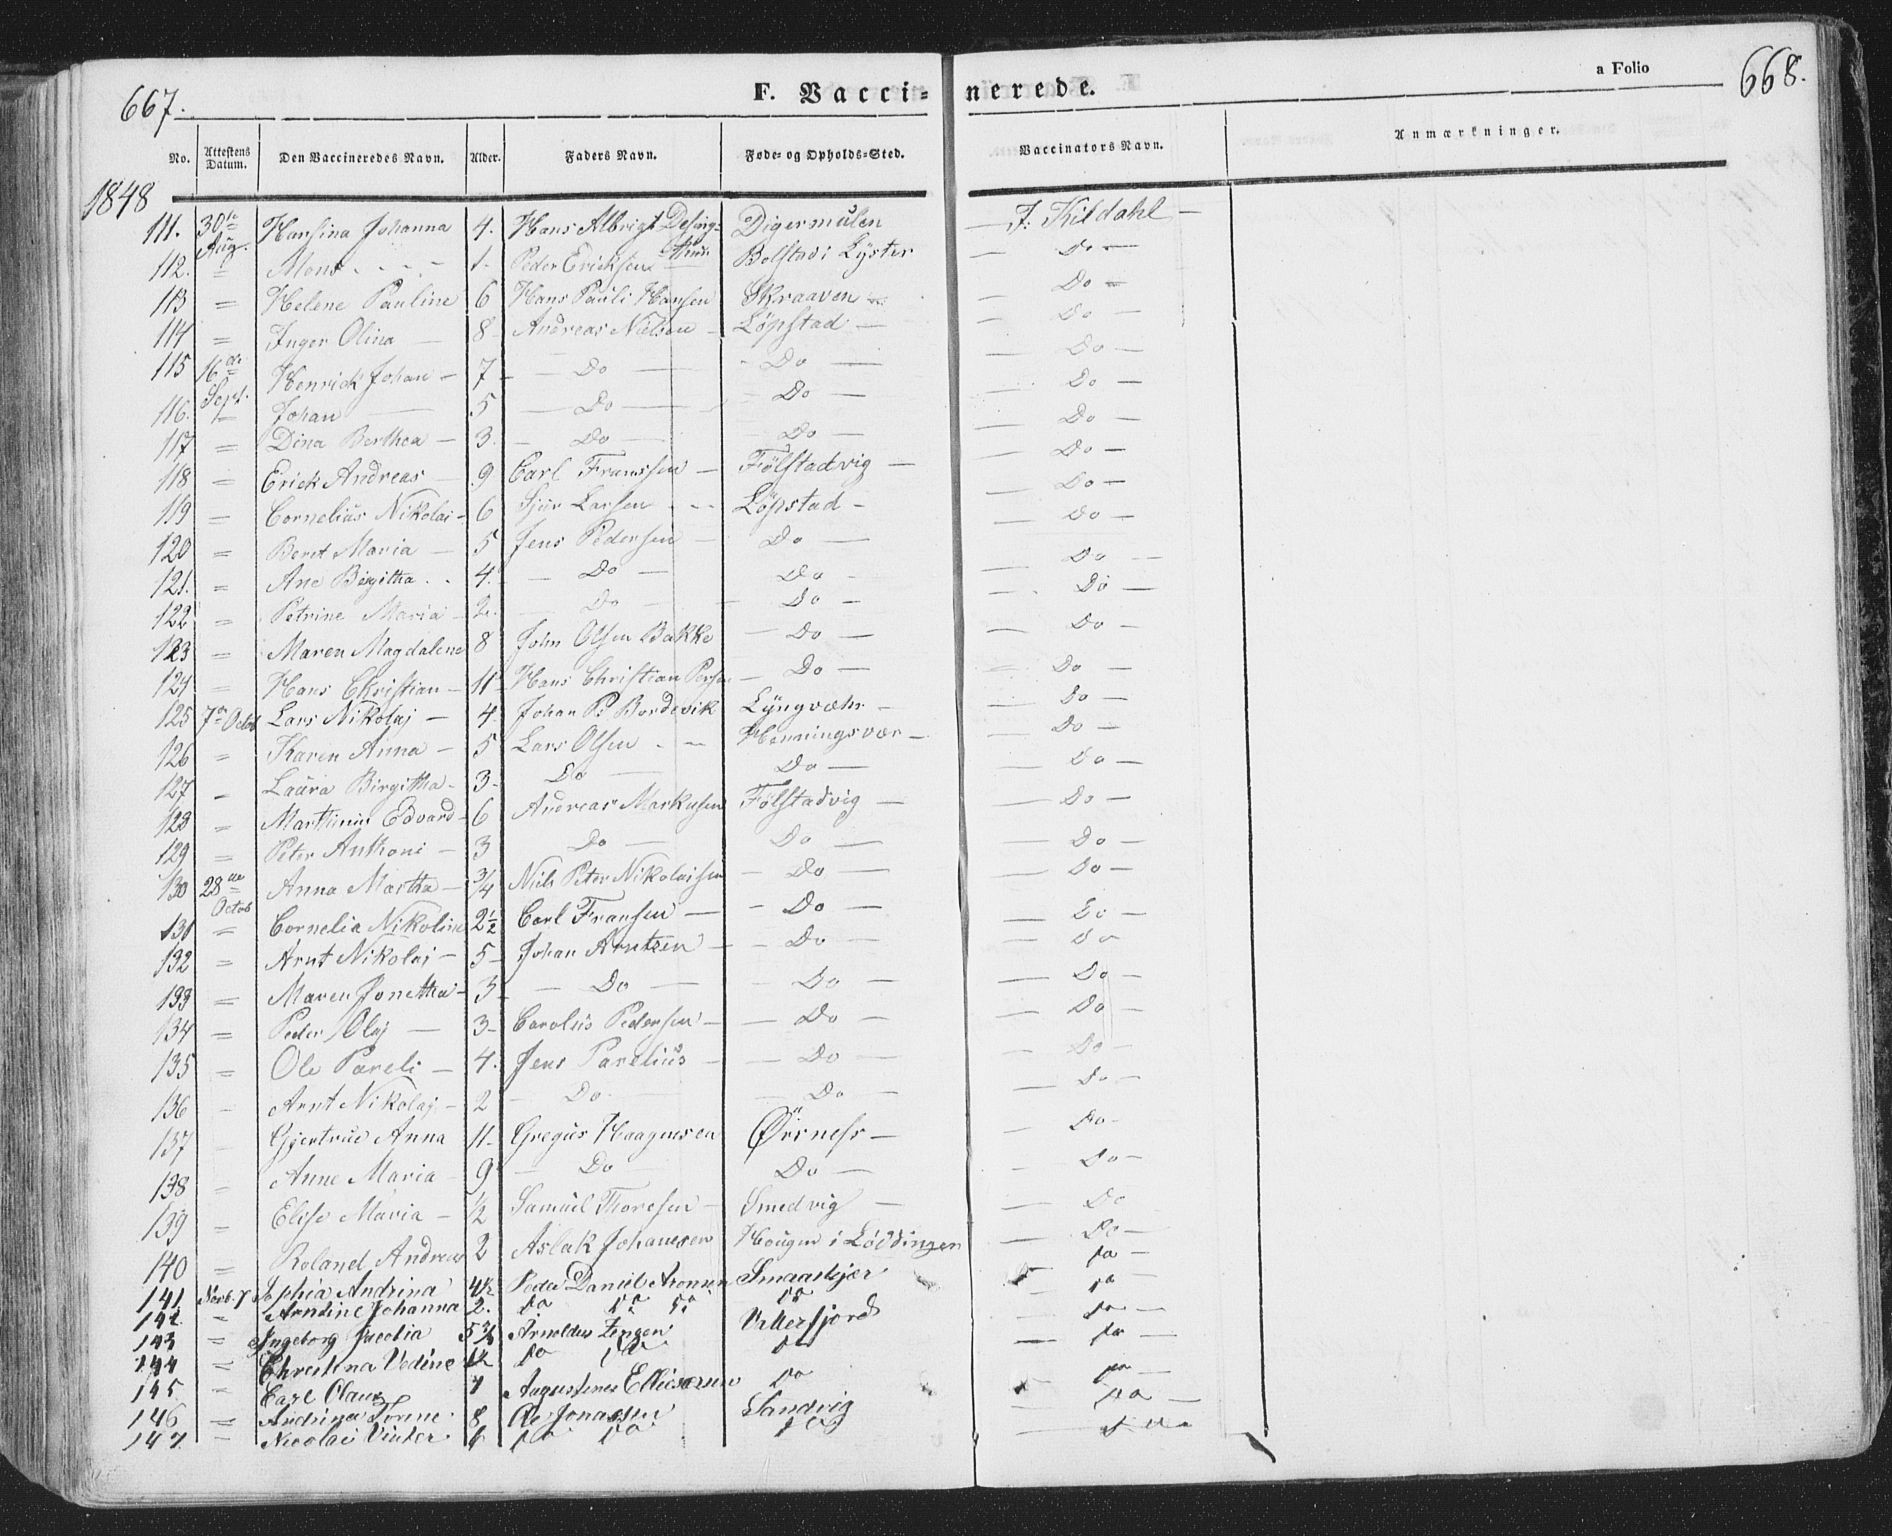 667. F. Vacci= nerede. a Folio 668.
No. Attestens Datum. Den Vaccineredes Navn. Alder. Faders Navn. Føde= og Opholds=Sted. Vaccinators Navn. Anmærkninger.
1848
111. 30te Aug. Hansina Johanna 4. Hans Albrigt Digermulen — J: Kildahl —
112. " Mons 1. Peder Ericksen Bolstad i Lyster — Do —
113 = Helene Pauline 6 Hans Pauli Hansen Skraaven — Do —
114 = Inger Olina — 8 Andreas Nielsen — Löpstad — — Do —
115 16de Sept. Henrick Johan — 7 — Do — - Do — — Do —
116. " Johan — 5 — Do — - Do — — Do —
117 = Dina Berthea — 3. - Do — Do — — Do —
118 = Erick Andreas 9 Carl Franssen — Fölstadvig — — Do —
119 = Cornelius Nikolai - 6 Sjur Larsen - - Löpstad - — Do —
120 = Beret Maria — 5 Jens Pedersen — Do — — Do —
121. = Ane Birgitha . . 4. - Do — Do - — Do —
122 = Petrine Maria - 2. — Do — Do — - Do —
123 = Maren Magdalene 8 John Olsen Bakke — Do — — Do -
124 = Hans Christian — 11 Hans Christian — Do — — Do —
125 7de Octob Lars Nikolaj — 4. Johan P: Bordevik Lyngvæhr — — Do —
126 = Karen Anna — 5 Lars Olsen . — Henningsvær — — Do —
127 = Laura Birgitha - 3 - Do — Do — — Do —
128 = Marthinus Edvard - 6 Andreas Markusen Fölstadvig — — Do —
129 = Peter Anthoni — 3 Do — Do — — Do —
130 28de Octob Anna Martha — 3/4 Niels Peter Nikolaisen - Do — — Do —
131 = Cornelia Nikoline 2½ Carl Fransen — - Do — — Do —
132 = Arnt Nikolai — 5 - Johan Arntzen — - Do — — Do
133 = Maren Jonetha - 3 — Do — - Do — — Do —
134 = Peder Olaj — 3 - Carolus Pedersen — — Do — — Do —
135 = Ole Pareli — 4. Jens Parelius — — Do — — Do —
136 - Arnt Nikolaj - 2 — Do — Do — — Do —
137 - Gjertrud Anna 11. Gregus Haagensen Örsness — — Do -
138 - Anne Maria 9 — Do — Do — — Do —
139 = Elise Maria — ½ Samuel Thoresen — Smedvig — — Do
140 = Roland Andreas 2 Aslak Johanesen Hougen i Löddingen — Do —
141 Novb. 7 Sophia Andrina 4½ Peder Daniel Aronsen Smaaskjær Do —
142 " Arndine Johanna 2. Do Do Do Do Do —
143 " Ingeborg Jacobia 5¾ Arnoldus Zengen Vatterfjord Do —
144 " Christina Vedine Do Do Do — Do —
145 " Carl Olaus 7 Augustinus Do Do —
146 = Andrina 8 Ole Jonassen Sandvig Do —
147 = Nicolai Vinter 6 Do Do Do Do